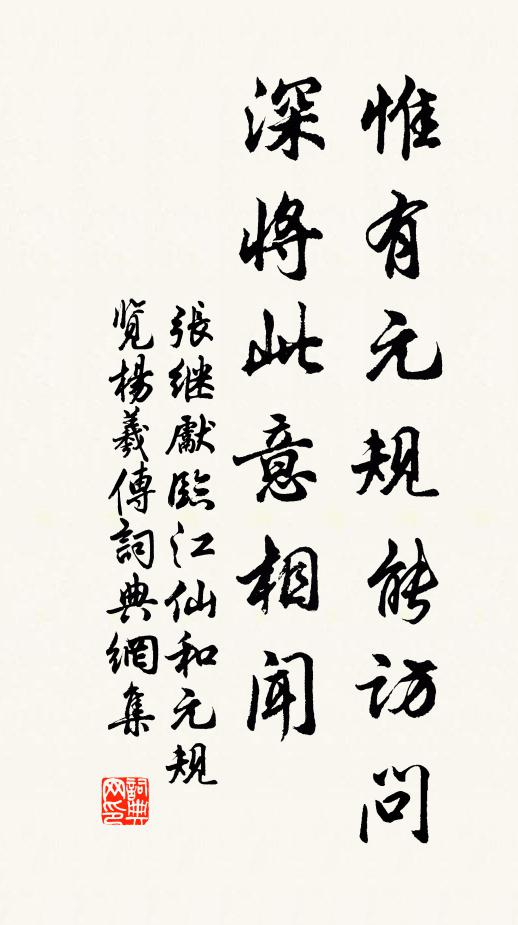 惟有元规能访问
深将此意相闻
張继獻臨江仙和元规
览楊羲傳詞典網集
詞典网印